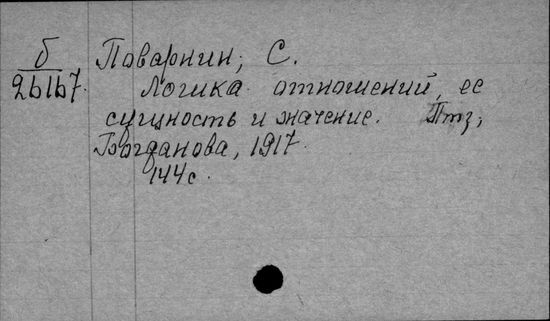 б Поварнин, С.
26167. Логика отношений, ее
сущность и значение. Птг,
Богданова, 1917.
144с.